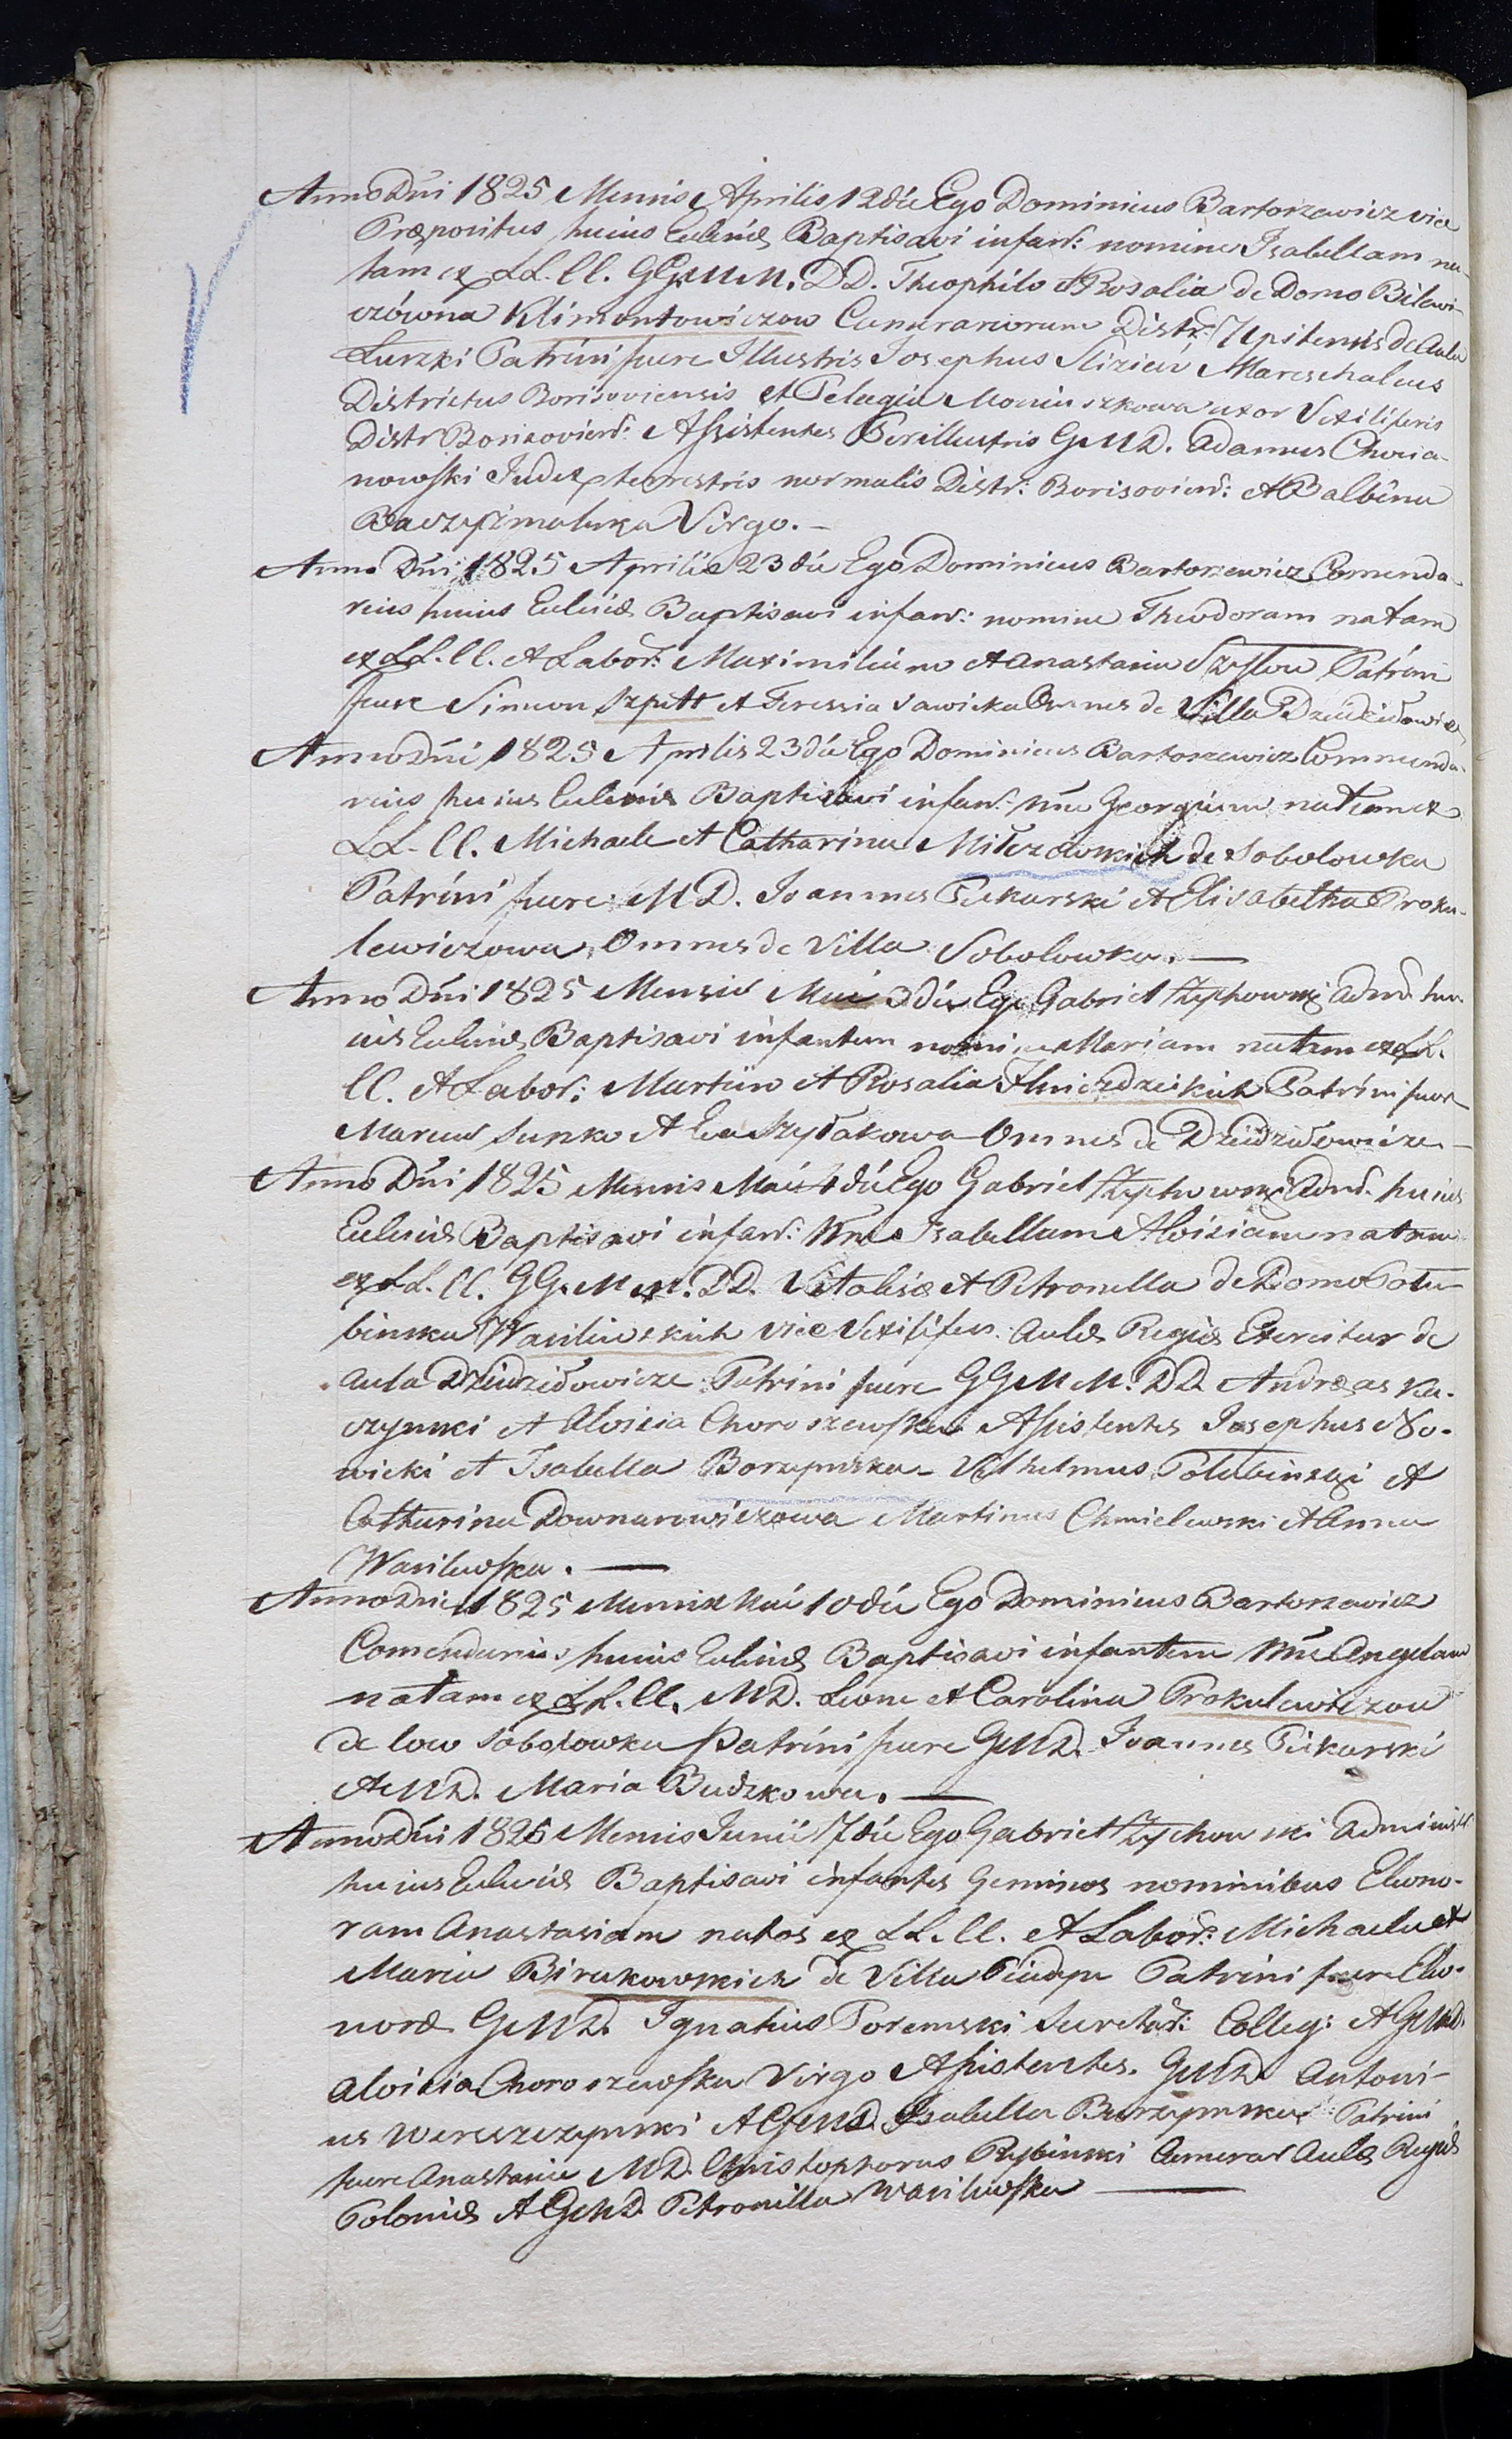 Anno Dni 1825 Mensis Aprilis 12 die Ego Dominicus Bartoszewicz vice
Præpositus huius Eccliæ Baptisavi infant: nomine Isabellam na-
tam ex LL. CC. GG. M. M. DD. Theophilo et Rosalia de Domo Bilewi-
czówna Klimontowiczow Camerariorum Distr: Upitensis de Aula
Luszki Patrini fuere Illustris Josephus Slizień Mareschalcus
Districtus Borisoviensis et Pelagia Moniuszkowa uxor Vexiliferis
Distr Borisoviens: Assistentes Perillustris G. M. D. Adamus Chocia-
nowski Judex terrestris normalis Distr: Borisoviens: et Balbina
Virgo.
Anno Dni 1825 Aprilis 23 die Ego Dominicus Bartoszewicz Comenda-
rius huius Eccliæ Baptisavi infant: nomine Theodoram natam
ex LL. CC. et Labor: Maximiliano et Anastasia Patrini
fuere Simeon Szpett et Teressia Sawicka Omnes de Villa Dziedziłowicze
Anno Dni 1825 Aprilis 23 die Ego Dominicus Bartoszewicz Commenda-
rius huius Eccliæ Baptisavi infant: nne Georgium natum ex
LL. CC. Michaele et Catharina Milczowskich de Sobolowka
Patrini fuere M D. Joannes Piekarski et Elisabetha Proku-
lewiczowa Omnes de Villa Sobolowka.
Anno Dni 1825 Mensis Maii 3 die Ego Gabriel Zychowski Admr hu-
ius Eccliæ Baptisavi infantem nomine Mariam natam ex LL.
CC. et Labor: Martino et Rosalia Patrini fuere
Marcus Sunko et Eva Szyłakowa Omnes de Dziedziłowicze
Anno Dni 1825 Mensis Maii 4 die Ego Gabriel Zychowski Admr. huius
Eccliæ Baptisavi infant: Nne Isabellam Aloisiam natam
ex LL. CC. GG. M M. DD. Vitalis et Petronella de Domo Połu-
binska Wasilewskich vice Vexilifer. Aulæ Regiæ Exercitus de
Aula Dziedziłowicze Patrini fuere GG M M. DD. Andreas Ka-
czynski et Aloisia Choroszewska Assistentes Josephus No-
wicki et Isabella Borzymska Vilhelmus Połubinski et
Catharina Downarowiczowa Martinus Chmielewski et Anna
Wasilewska.
Anno Dni 1825 Mensis Maii 10 die Ego Dominicus Bartoszewicz
Comendarius huius Eccliæ Baptisavi infantem Nne Angelam
natam ex LL. CC. M D. Leone et Carolina Prokulewiczow
de loco Sobolowka Patrini fuere G M D. Joannes Piekarski
et M D. Maria Budzkowa.
Anno Dni 1825 Mensis Junii 7 die Ego Gabriel Zychowski Administr:
huius Eccliæ Baptisavi infantes Geminos nominibus Eleono-
ram Anastasiam natos ex LL. CC. et Labor: Michaele et
Maria Birukowskich de Villa Patrini fuere Eleo-
noræ G M D. Ignatius Poremski Secretar: Colleg: et G M D.
Aloisia Choroszewska Virgo Assistentes. G M D. Antoni-
us Wereszczynski et G M D. Isabella Borzymska Patrini
fuere Anastasiæ M D. Christophorus Rybinski Camerar Aulæ Regiæ
Poloniæ et G M D. Petronilla Wasilewska